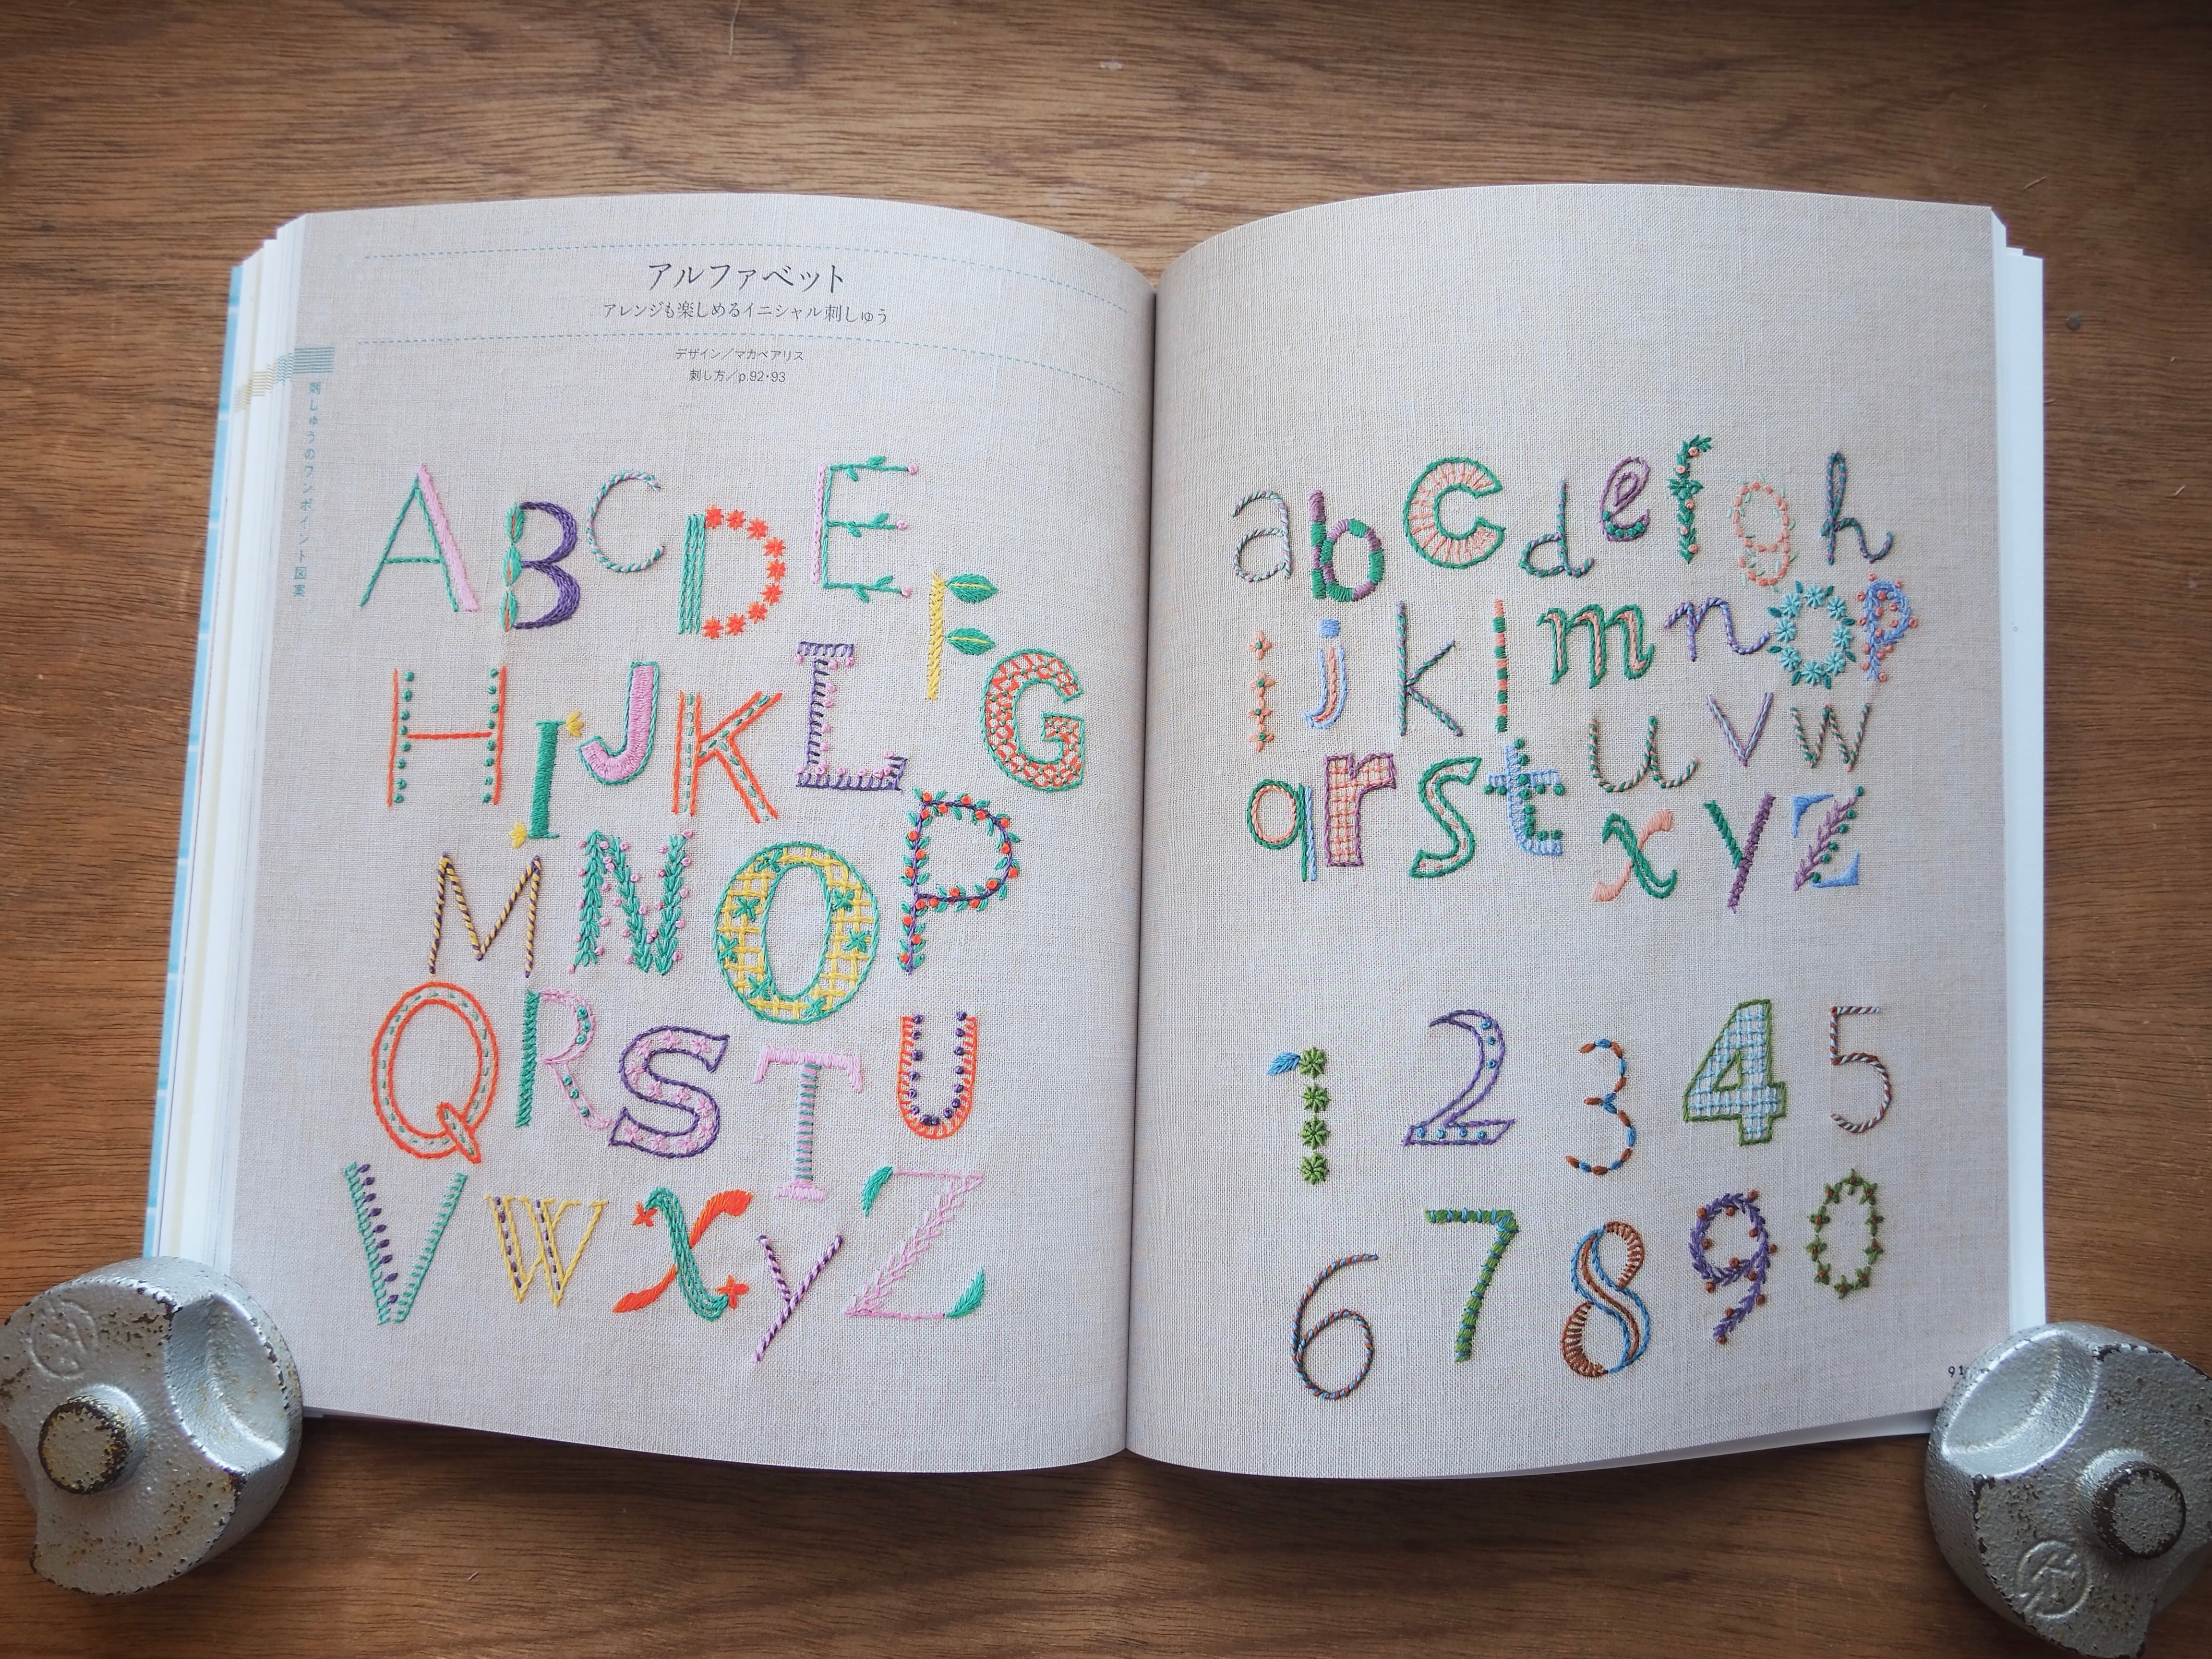 アルファベット
アレンジも楽しめるイニシャル刺しゅう
デザイン／マカベアリス
刺し方／p.92・93
刺しゅうのワンポイント図案
A B C D E F G
H I J K L
M N O P
Q R S T U
V W X Y Z
a b c d e f g h
i j k l m n o p
q r s t u v w
x y z
1 2 3 4 5
6 7 8 9 0
91